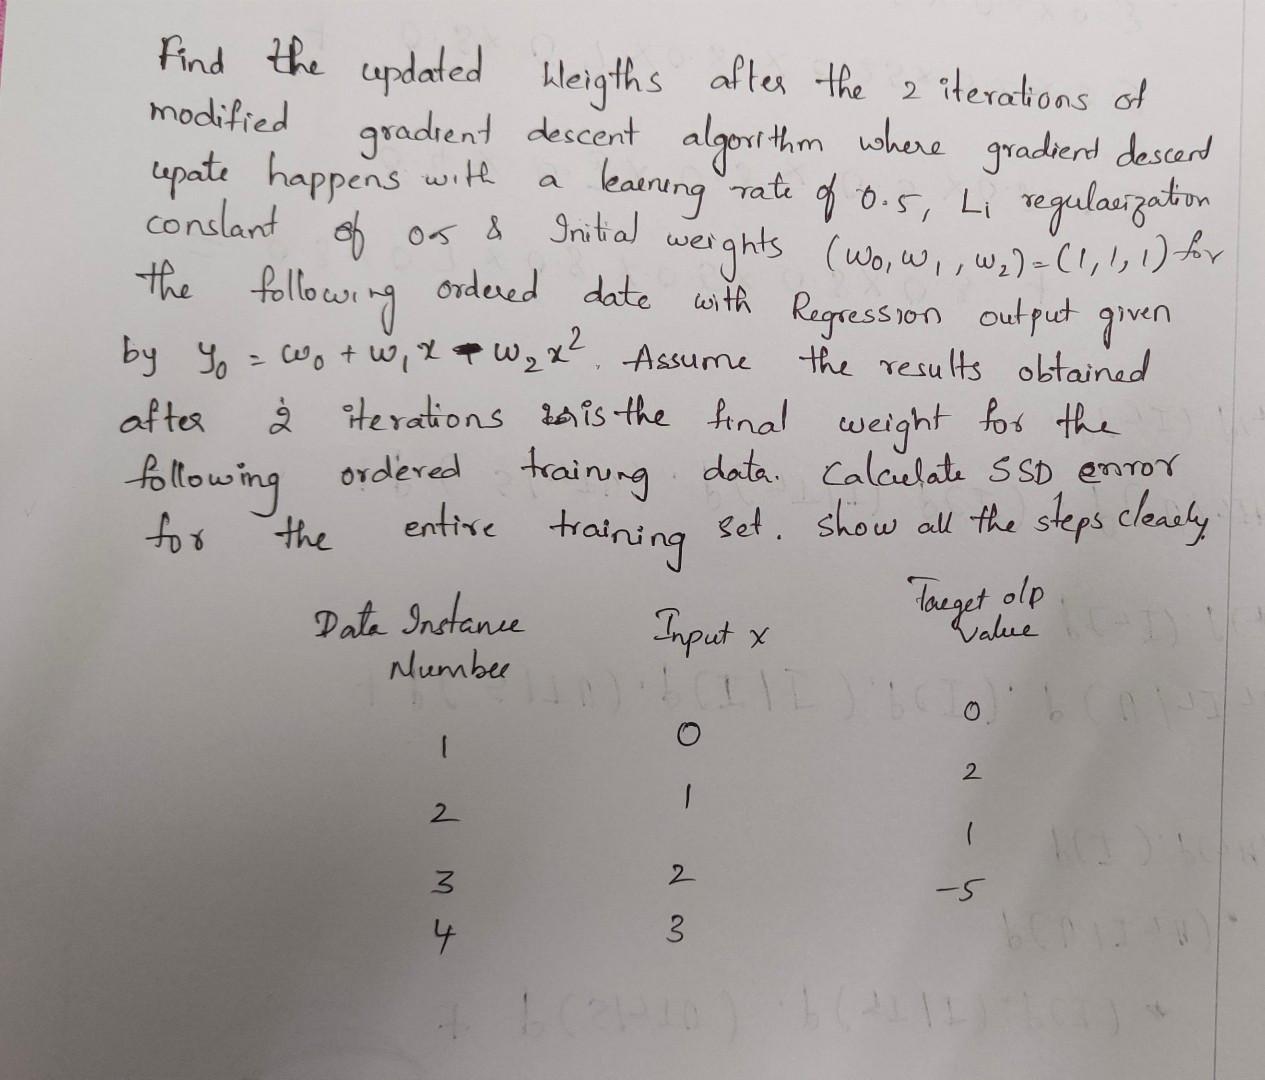 Find the updated Weigths after the 2 iterations of
modified gradient descent algorithm where gradient descend
upate happens with a learning rate of 0.5, L1 regularization
constant of 0.5 & Initial weights (w0, w1, w2) = (1, 1, 1) for
the following ordered date with Regression output given
by y0 = w0 + w1 x + w2 x². Assume the results obtained
after 2 iterations is the final weight for the
following ordered training data. Calculate SSD error
for the entire training set. Show all the steps clearly.
Data Instance Input x Target o/p
Number Value
1 0 0
2 1 2
3 2 1
4 3 -5